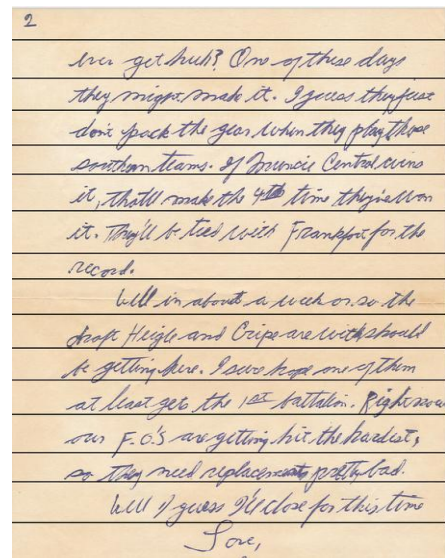 2
ever get huh? One of these days
they might make it. I guess they just
don't pack the gear when they play those
southern teams. If Muncie Central wins
it, that'll make the 4th time they've won
it. They'll be tied with Frankfort for the
record.
Well in about a week or so the
draft Heigle and Cripe are with should
be getting here. I sure hope one of them
at least gets the 1st battalion. Right now
our F.O.'S are getting hit the hardest,
so they need replacements pretty bad.
Well I guess I'll close for this time
Love,